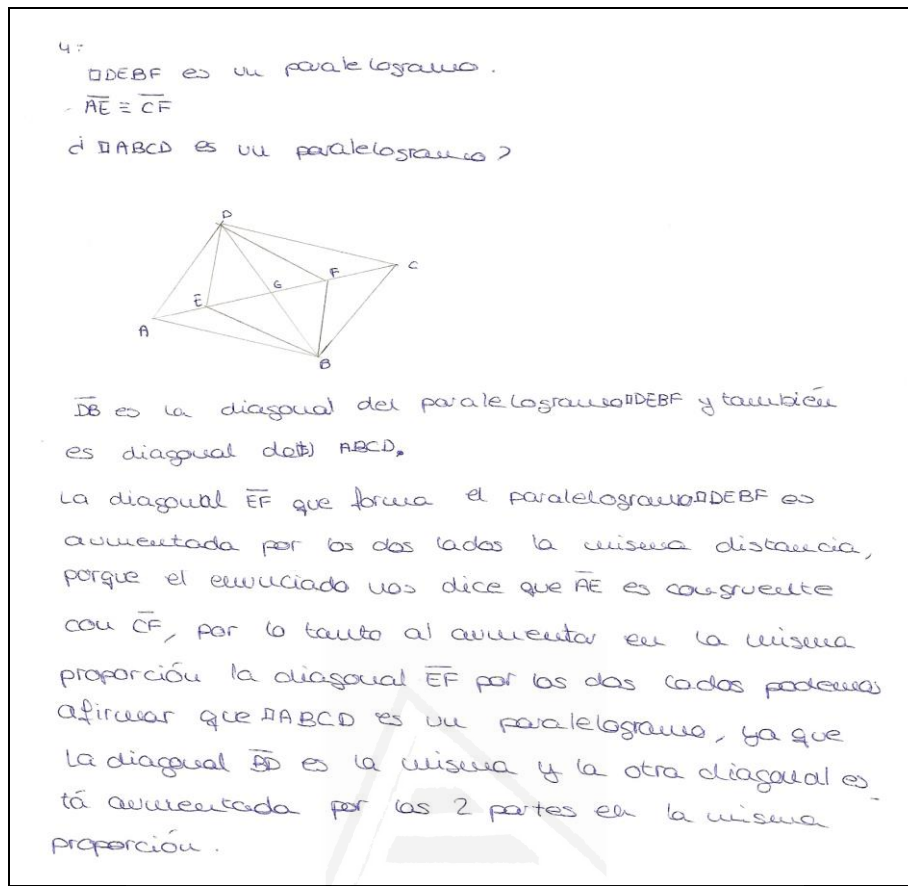 4:
□DEBF es un paralelogramo.
- AE ≡ CF
¿ □ABCD es un paralelogramo?
D
C
F
G
E
A
B
DB es la diagonal del paralelogramo □DEBF y también
es diagonal del ABCD.
La diagonal EF que forma el paralelogramo □DEBF es
aumentada por los dos lados la misma distancia,
porque el enunciado nos dice que AE es congruente
con CF, por lo tanto al aumentar en la misma
proporción la diagonal EF por los dos lados podemos
afirmar que □ABCD es un paralelogramo, ya que
la diagonal BD es la misma y la otra diagonal es
tá aumentada por las 2 partes en la misma
proporción.